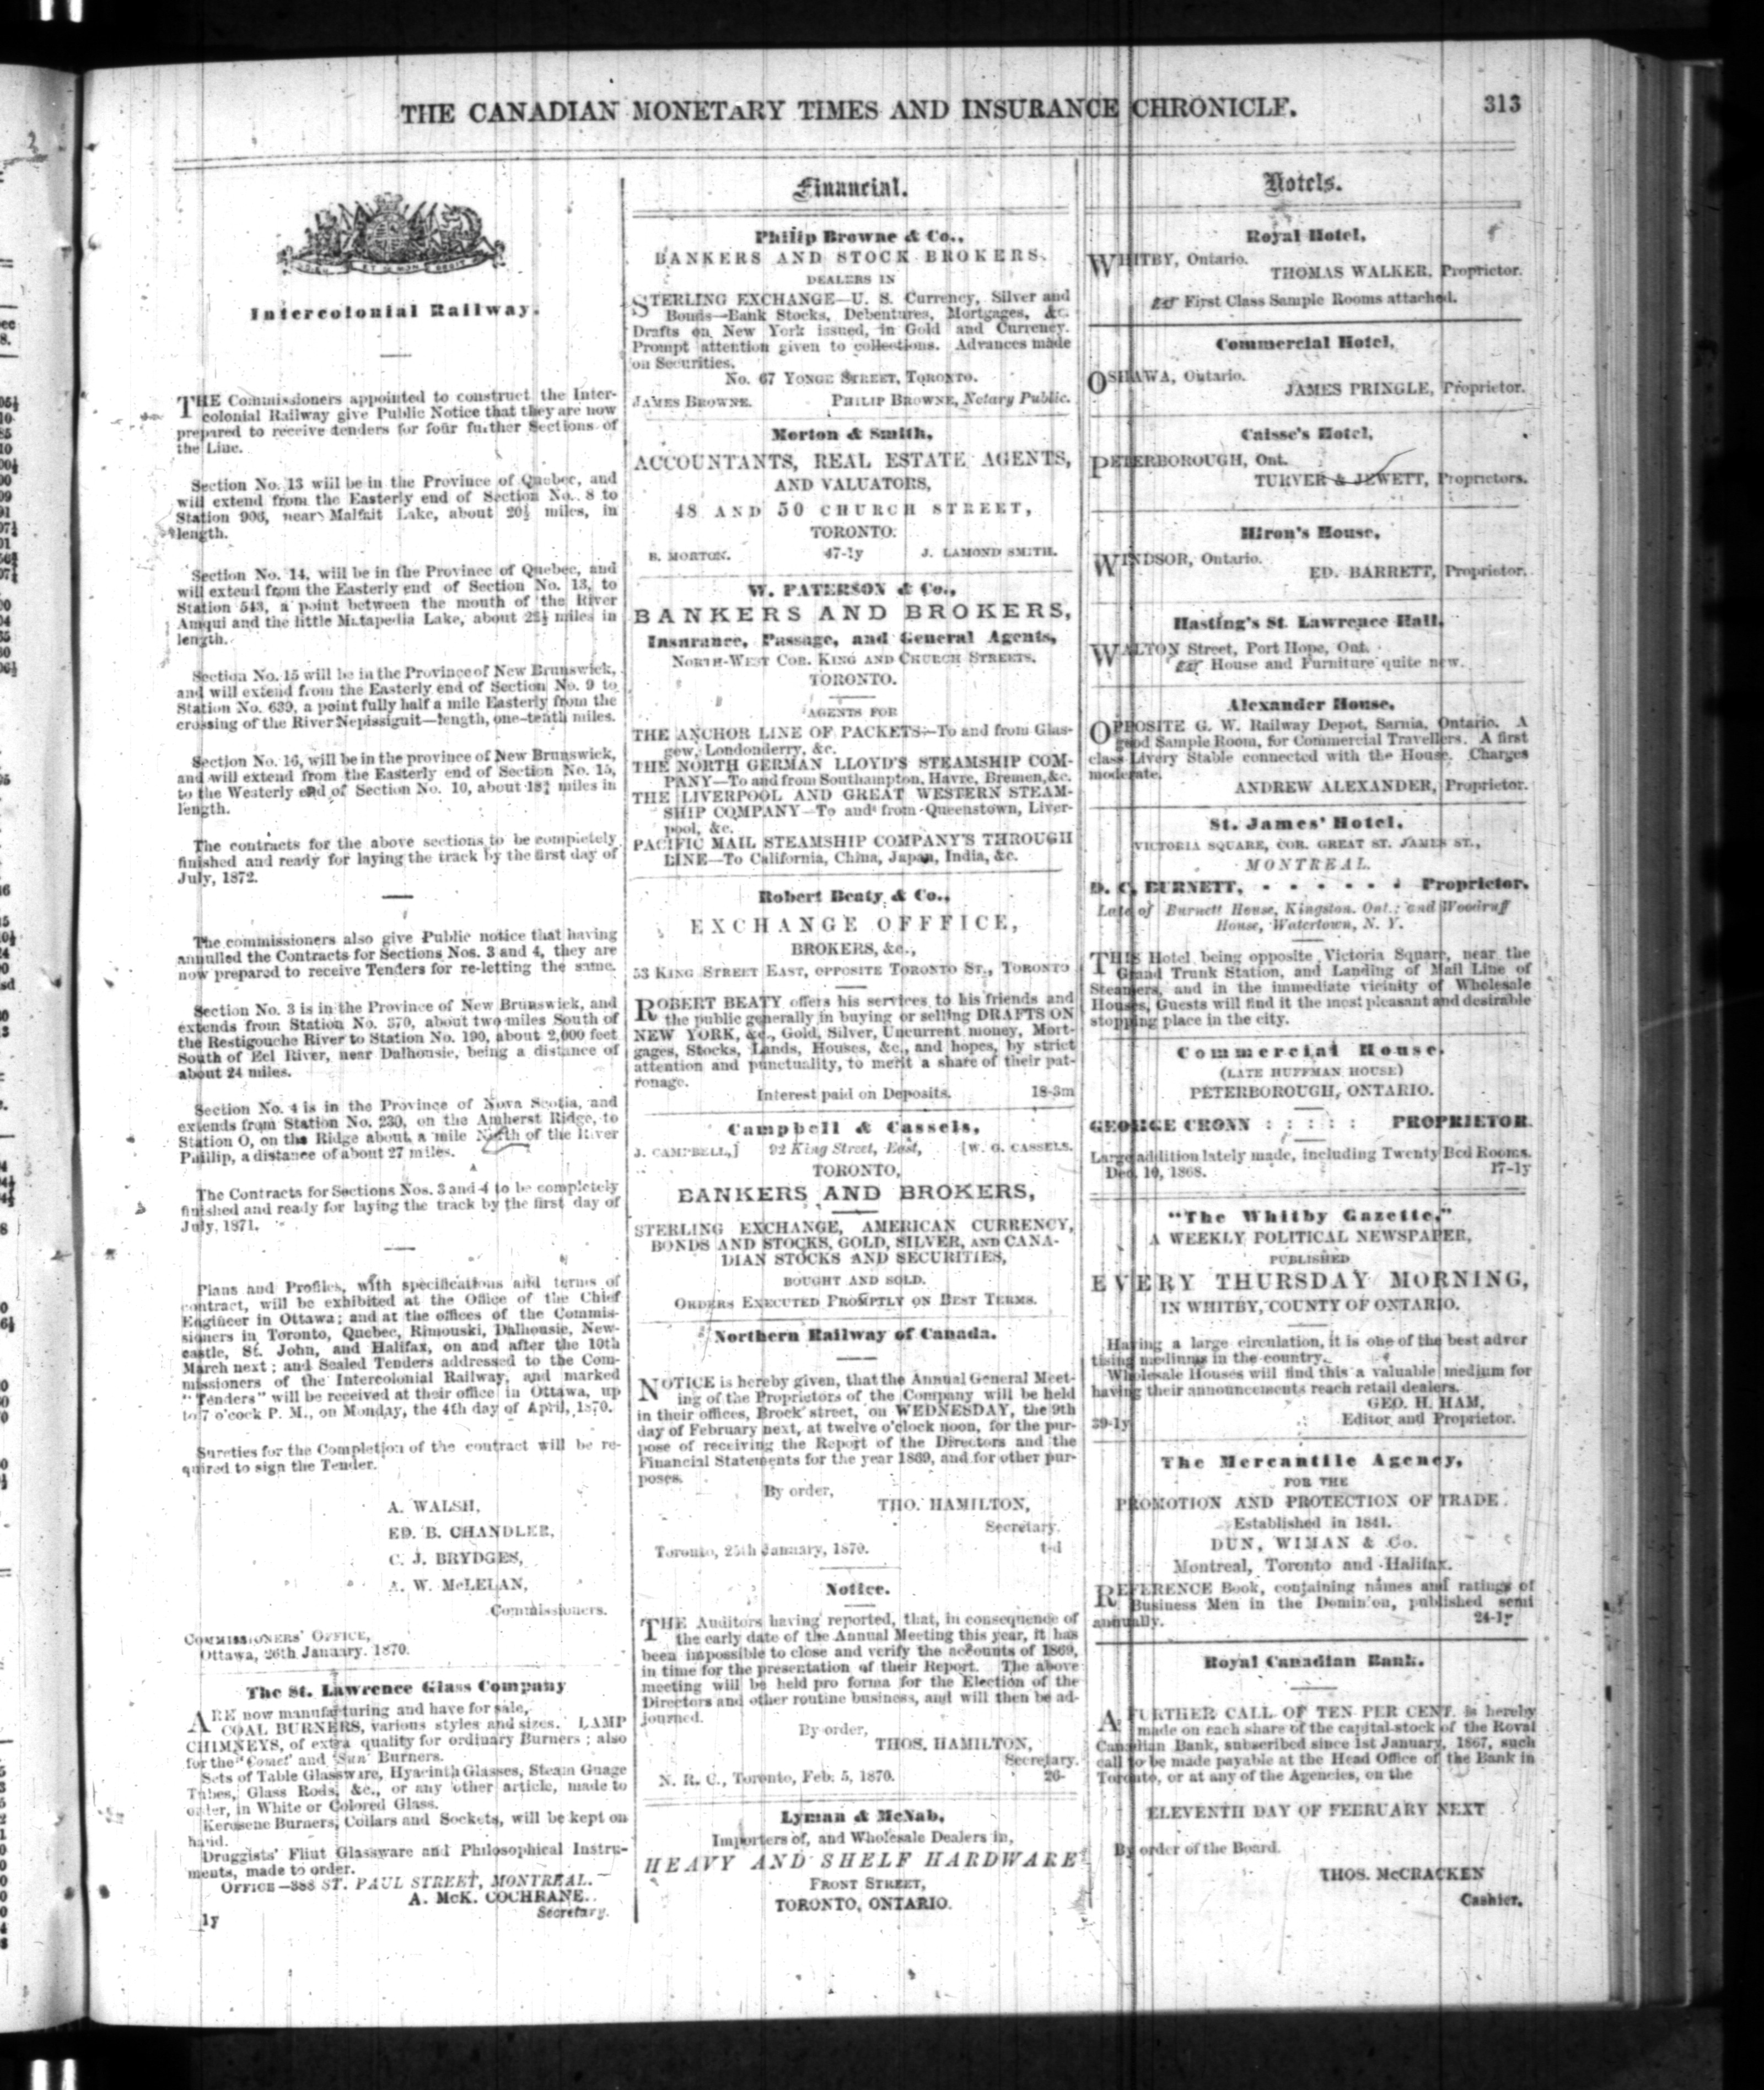 THE CANADIAN MONETARY TIMES AND INSURANCE CHRONICLE.
313
Intercolonial Railway.
THE Commissioners appointed to construct the Inter-
colonial Railway give Public Notice that they are now
prepared to receive tenders for four further Sections of
the Line.
Section No. 13 will be in the Province of Quebec, and
will extend from the Easterly end of Section No. 8 to
Station 906, near Malfait Lake, about 20½ miles, in
length.
Section No. 14, will be in the Province of Quebec, and
will extend from the Easterly end of Section No. 13, to
Station 543, a point between the mouth of the River
Amqui and the little Matapedia Lake, about 22½ miles in
length.
Section No. 15 will be in the Province of New Brunswick,
and will extend from the Easterly end of Section No. 9 to
Station No. 639, a point fully half a mile Easterly from the
crossing of the River Nepissiguit—length, one-tenth miles.
Section No. 16, will be in the province of New Brunswick,
and will extend from the Easterly end of Section No. 15,
to the Westerly end of Section No. 10, about 18½ miles in
length.
The contracts for the above sections to be completely
finished and ready for laying the track by the first day of
July, 1872.
The commissioners also give Public notice that having
annulled the Contracts for Sections Nos. 3 and 4, they are
now prepared to receive Tenders for re-letting the same.
Section No. 3 is in the Province of New Brunswick, and
extends from Station No. 370, about two miles South of
the Restigouche River to Station No. 190, about 2,000 feet
South of Eel River, near Dalhousie, being a distance of
about 24 miles.
Section No. 4 is in the Province of Nova Scotia, and
extends from Station No. 230, on the Amherst Ridge, to
Station O, on the Ridge about a mile North of the River
Phillip, a distance of about 27 miles.
The Contracts for Sections Nos. 3 and 4 to be completely
finished and ready for laying the track by the first day of
July, 1871.
Plans and Profiles, with specifications and terms of
contract, will be exhibited at the Office of the Chief
Engineer in Ottawa; and at the offices of the Commis-
sioners in Toronto, Quebec, Rimouski, Dalhousie, New-
castle, St. John, and Halifax, on and after the 10th
March next; and Sealed Tenders addressed to the Com-
missioners of the Intercolonial Railway, and marked
"Tenders" will be received at their office in Ottawa, up
to 7 o'cock P. M., on Monday, the 4th day of April, 1870.
Sureties for the Completion of the contract will be re-
quired to sign the Tender.
A. WALSH,
ED. B. CHANDLER,
C. J. BRYDGES,
A. W. McLELAN,
Commissioners.
COMMISSIONERS' OFFICE,
Ottawa, 26th January. 1870.
The St. Lawrence Glass Company
ARE now manufacturing and have for sale,
COAL BURNERS, various styles and sizes. LAMP
CHIMNEYS, of extra quality for ordinary Burners; also
for the 'Comet' and 'Sun' Burners.
Sets of Table Glassware, Hyacinth Glasses, Steam Guage
Tubes, Glass Rods, &c., or any other article, made to
order, in White or Colored Glass.
Kerosene Burners, Collars and Sockets, will be kept on
hand.
Druggists' Flint Glassware and Philosophical Instru-
ments, made to order.
OFFICE—388 ST. PAUL STREET, MONTREAL.
A. McK. COCHRANE.
Secretary.
1y
Financial.
Philip Browne & Co.,
BANKERS AND STOCK BROKERS.
DEALERS IN
STERLING EXCHANGE—U. S. Currency, Silver and
Bonds—Bank Stocks, Debentures, Mortgages, &c.
Drafts on New York issued, in Gold and Currency.
Prompt attention given to collections. Advances made
on Securities.
No. 67 YONGE STREET, TORONTO.
JAMES BROWNE. PHILIP BROWNE, Notary Public.
Morton & Smith,
ACCOUNTANTS, REAL ESTATE AGENTS,
AND VALUATORS,
48 AND 50 CHURCH STREET,
TORONTO.
B. MORTON. 47-1y J. LAMOND SMITH.
W. PATERSON & Co.,
BANKERS AND BROKERS,
Insurance, Passage, and General Agents,
NORTH-WEST COR. KING AND CHURCH STREETS.
TORONTO.
AGENTS FOR
THE ANCHOR LINE OF PACKETS—To and from Glas-
gow, Londonderry, &c.
THE NORTH GERMAN LLOYD'S STEAMSHIP COM-
PANY—To and from Southampton, Havre, Bremen, &c.
THE LIVERPOOL AND GREAT WESTERN STEAM-
SHIP COMPANY—To and from Queenstown, Liver-
pool, &c.
PACIFIC MAIL STEAMSHIP COMPANY'S THROUGH
LINE—To California, China, Japan, India, &c.
Robert Beaty & Co.,
EXCHANGE OFFFICE,
BROKERS, &c.,
53 KING STREET EAST, OPPOSITE TORONTO ST., TORONTO
ROBERT BEATY offers his services to his friends and
the public generally in buying or selling DRAFTS ON
NEW YORK, &c., Gold, Silver, Uncurrent money, Mort-
gages, Stocks, Lands, Houses, &c., and hopes, by strict
attention and punctuality, to merit a share of their pat-
ronage.
Interest paid on Deposits. 18-3m
Campbell & Cassels,
J. CAMPBELL,] 92 King Street, East, [W. G. CASSELS.
TORONTO,
BANKERS AND BROKERS,
STERLING EXCHANGE, AMERICAN CURRENCY,
BONDS AND STOCKS, GOLD, SILVER, AND CANA-
DIAN STOCKS AND SECURITIES,
BOUGHT AND SOLD.
ORDERS EXECUTED PROMPTLY ON BEST TERMS.
Northern Railway of Canada.
NOTICE is hereby given, that the Annual General Meet-
ing of the Proprietors of the Company will be held
in their offices, Brock street, on WEDNESDAY, the 9th
day of February next, at twelve o'clock noon, for the pur-
pose of receiving the Report of the Directors and the
Financial Statements for the year 1869, and for other pur-
poses.
By order,
THO. HAMILTON,
Secretary.
Toronto, 25th January, 1870. t-d
Notice.
THE Auditors having reported, that, in consequence of
the early date of the Annual Meeting this year, it has
been impossible to close and verify the accounts of 1869,
in time for the presentation of their Report. The above
meeting will be held pro forma for the Election of the
Directors and other routine business, and will then be ad-
journed.
By order,
THOS. HAMILTON,
Secretary.
N. R. C., Toronto, Feb. 5, 1870. 26-
Lyman & McNab,
Importers of, and Wholesale Dealers in,
HEAVY AND SHELF HARDWARE
FRONT STREET,
TORONTO, ONTARIO.
Hotels.
Royal Hotel,
WHITBY, Ontario.
THOMAS WALKER, Proprietor.
First Class Sample Rooms attached.
Commercial Hotel,
OSHAWA, Ontario.
JAMES PRINGLE, Proprietor.
Caisse's Hotel,
PETERBOROUGH, Ont.
TURVER & JEWETT, Proprietors.
Hiron's House,
WINDSOR, Ontario.
ED. BARRETT, Proprietor.
Hasting's St. Lawrence Hall,
WALTON Street, Port Hope, Ont.
House and Furniture quite new.
Alexander House,
OPPOSITE G. W. Railway Depot, Sarnia, Ontario. A
good Sample Room, for Commercial Travellers. A first
class Livery Stable connected with the House. Charges
moderate.
ANDREW ALEXANDER, Proprietor.
St. James' Hotel,
VICTORIA SQUARE, COR. GREAT ST. JAMES ST.,
MONTREAL.
D. C. BURNETT, - - - - - - Proprietor.
Late of Burnett House, Kingston. Ont.; and Woodruff
House, Watertown, N. Y.
THIS Hotel being opposite Victoria Square, near the
Grand Trunk Station, and Landing of Mail Line of
Steamers, and in the immediate vicinity of Wholesale
Houses, Guests will find it the most pleasant and desirable
stopping place in the city.
Commercial House.
(LATE HUFFMAN HOUSE)
PETERBOROUGH, ONTARIO.
GEORGE CRONN : : : : : PROPRIETOR.
Large addition lately made, including Twenty Bed Rooms.
Dec. 10, 1868. 17-1y
"The Whitby Gazette,"
A WEEKLY POLITICAL NEWSPAPER,
PUBLISHED
EVERY THURSDAY MORNING,
IN WHITBY, COUNTY OF ONTARIO.
Having a large circulation, it is one of the best adver
tising mediums in the country.
Wholesale Houses will find this a valuable medium for
having their announcements reach retail dealers.
GEO. H. HAM,
39-1y Editor and Proprietor.
The Mercantile Agency,
FOR THE
PROMOTION AND PROTECTION OF TRADE.
Established in 1841.
DUN, WIMAN & Co.
Montreal, Toronto and Halifax.
REFERENCE Book, containing names and ratings of
Business Men in the Dominion, published semi
annually. 24-1y
Royal Canadian Bank.
A FURTHER CALL OF TEN PER CENT. is hereby
made on each share of the capital stock of the Royal
Canadian Bank, subscribed since 1st January, 1867, such
call to be made payable at the Head Office of the Bank in
Toronto, or at any of the Agencies, on the
ELEVENTH DAY OF FEBRUARY NEXT
By order of the Board.
THOS. McCRACKEN
Cashier.